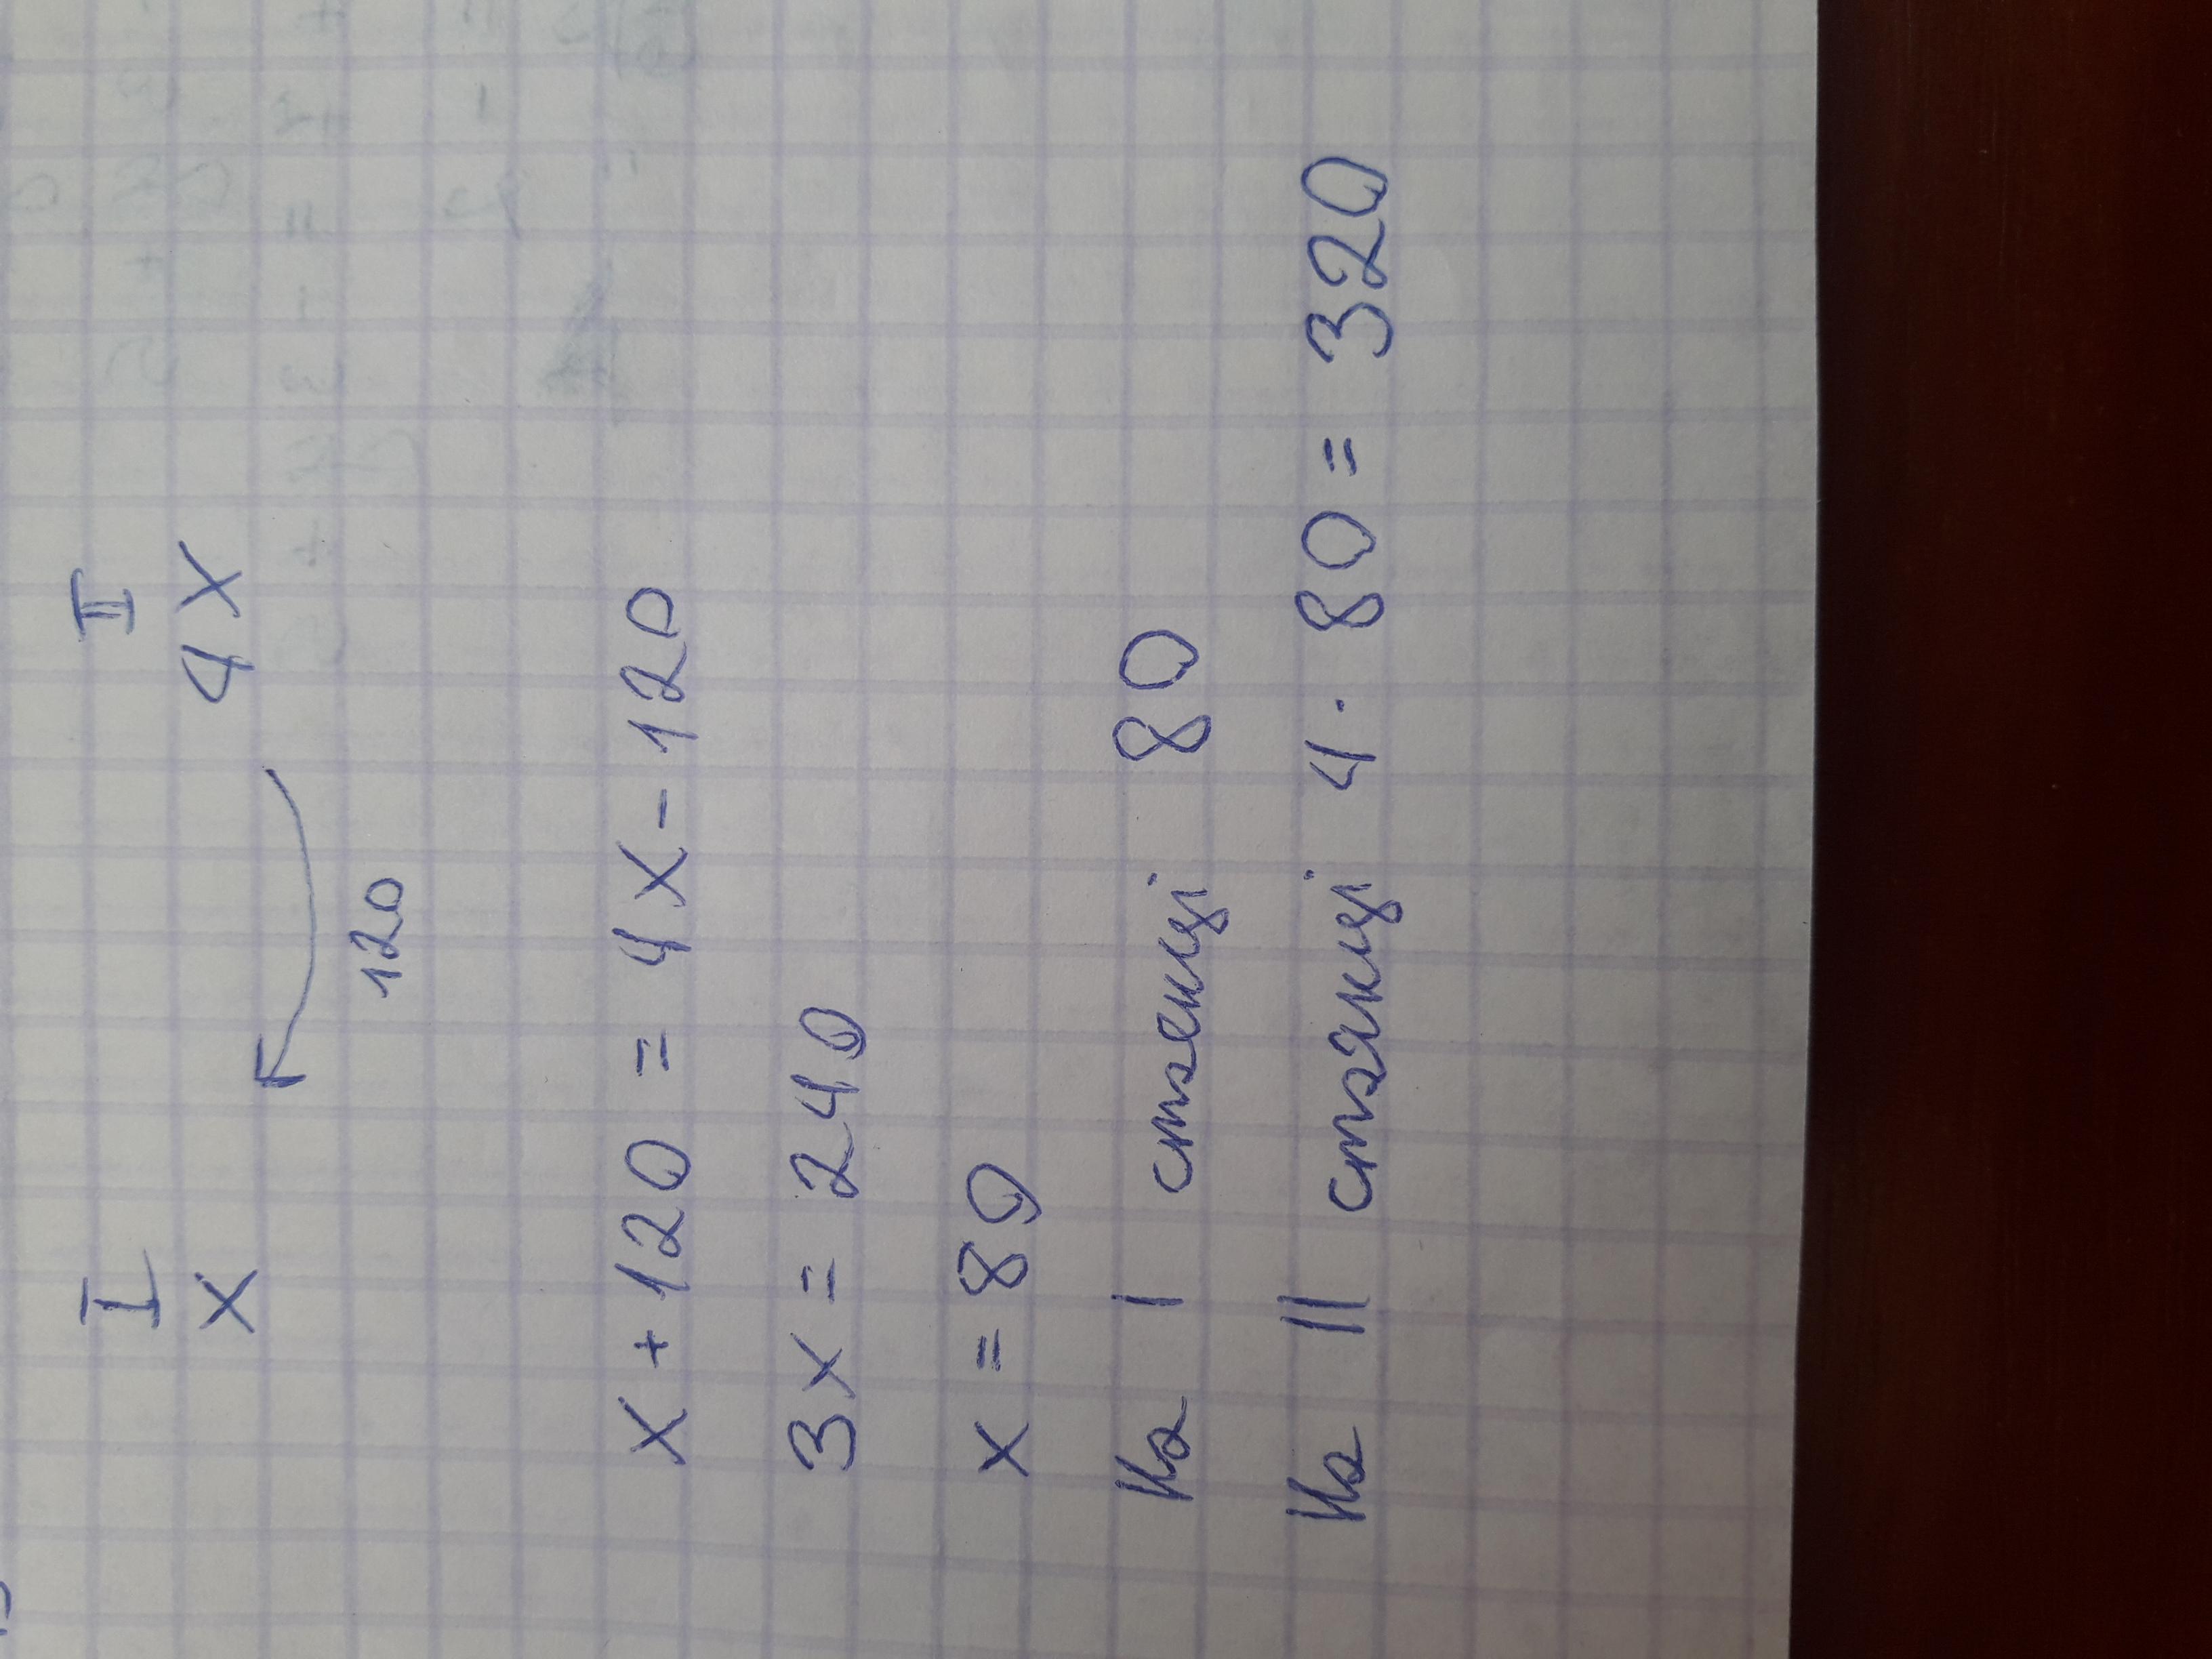 I II
x 4x
120
x + 120 = 4x - 120
3x = 240
x = 80
На I стоянці 80
На II стоянці 4 · 80 = 320